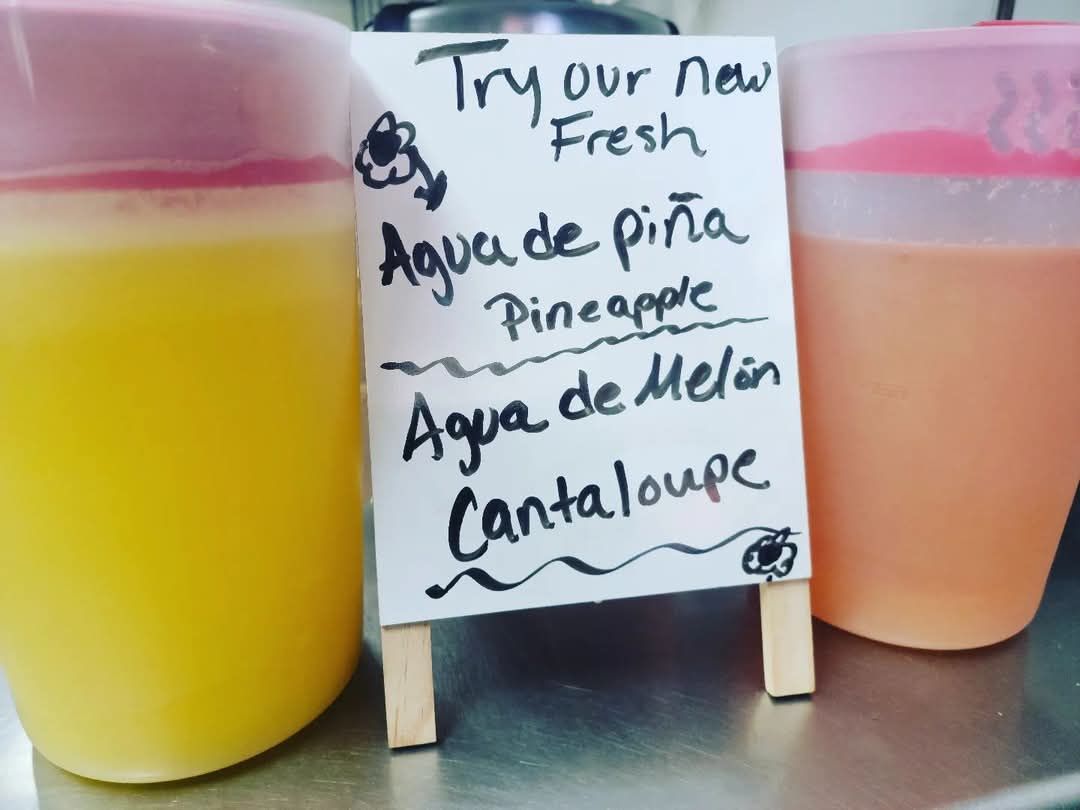 Try our new
Fresh
Agua de piña
Pineapple
Agua de Melón
Cantaloupe